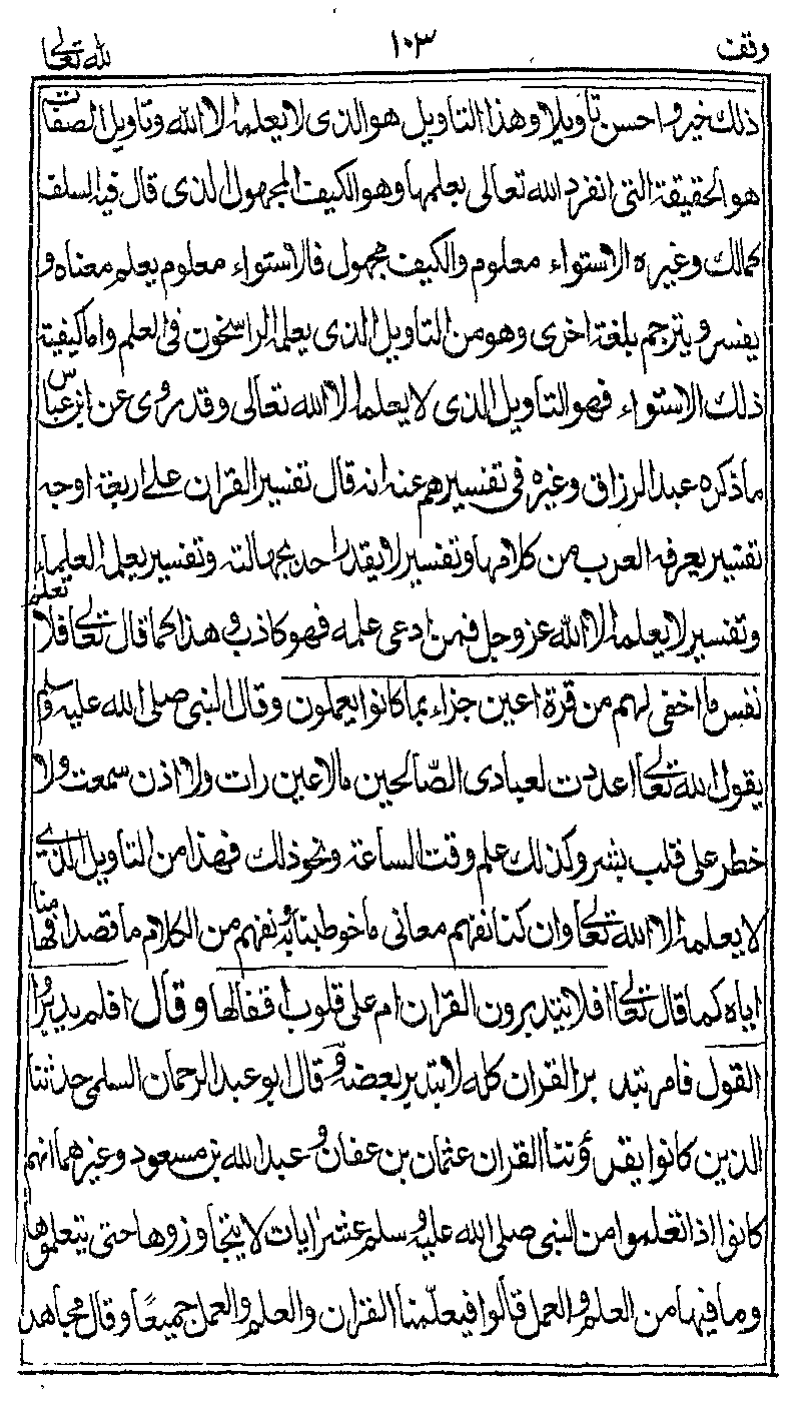 وقف ١٠٣ لله تعالى
ذلك خير واحسن تأويلا وهذا التاويل هو الذى لا يعلمه الا الله وتاويل الصفات
هو الحقيقة التى انفرد الله تعالى بعلمها وهو الكيف المجهول الذى قال فيه السلف
كمالك وغيره الاستواء معلوم والكيف مجهول فالاستواء معلوم يعلم معناه و
يفسر ويترجم بلغة اخرى وهو من التاويل الذى يعلمه الراسخون فى العلم واما كيفية
ذلك الاستواء فهو التاويل الذى لا يعلمه الا الله تعالى وقد روى عن ابن عباس
ما ذكره عبد الرزاق وغيره فى تفسيرهم عنه انه قال تفسير القران على اربعة اوجه
تفسير يعرفه العرب من كلامها وتفسير لا يقدر احد بجهالته وتفسير يعلمه العلماء
وتفسير لا يعلمه الا الله عز وجل فمن ادعى علمه فهو كاذب وهذا كما قال تعالى فلا تعلم
نفس ما اخفى لهم من قرة اعين جزاء بما كانوا يعملون وقال النبى صلى الله عليه وسلم
يقول الله تعالى اعددت لعبادى الصالحين ما لا عين رات ولا اذن سمعت ولا
خطر على قلب بشر وكذلك علم وقت الساعة ونحو ذلك فهذا من التاويل الذى
لا يعلمه الا الله تعالى وان كنا نفهم معانى ما خوطبنا به نفهم من الكلام ما قصد افهامنا
اياه كما قال تعالى افلا يتدبرون القران ام على قلوب اقفالها وقال افلم يدبروا
القول فامر بتد بر القران كله لا بتدبر بعضه وقال ابو عبد الرحمان السلمى حدثنا
الذين كانوا يقرؤننا القران عثمان بن عفان وعبد الله بن مسعود وغيرهما انهم
كانوا اذا تعلموا من النبى صلى الله عليه وسلم عشر ايات لا يتجاوزوها حتى يتعلموها
وما فيها من العلم والعمل قالوا فيعلّمنا القران والعلم والعمل جميعًا وقال مجاهد